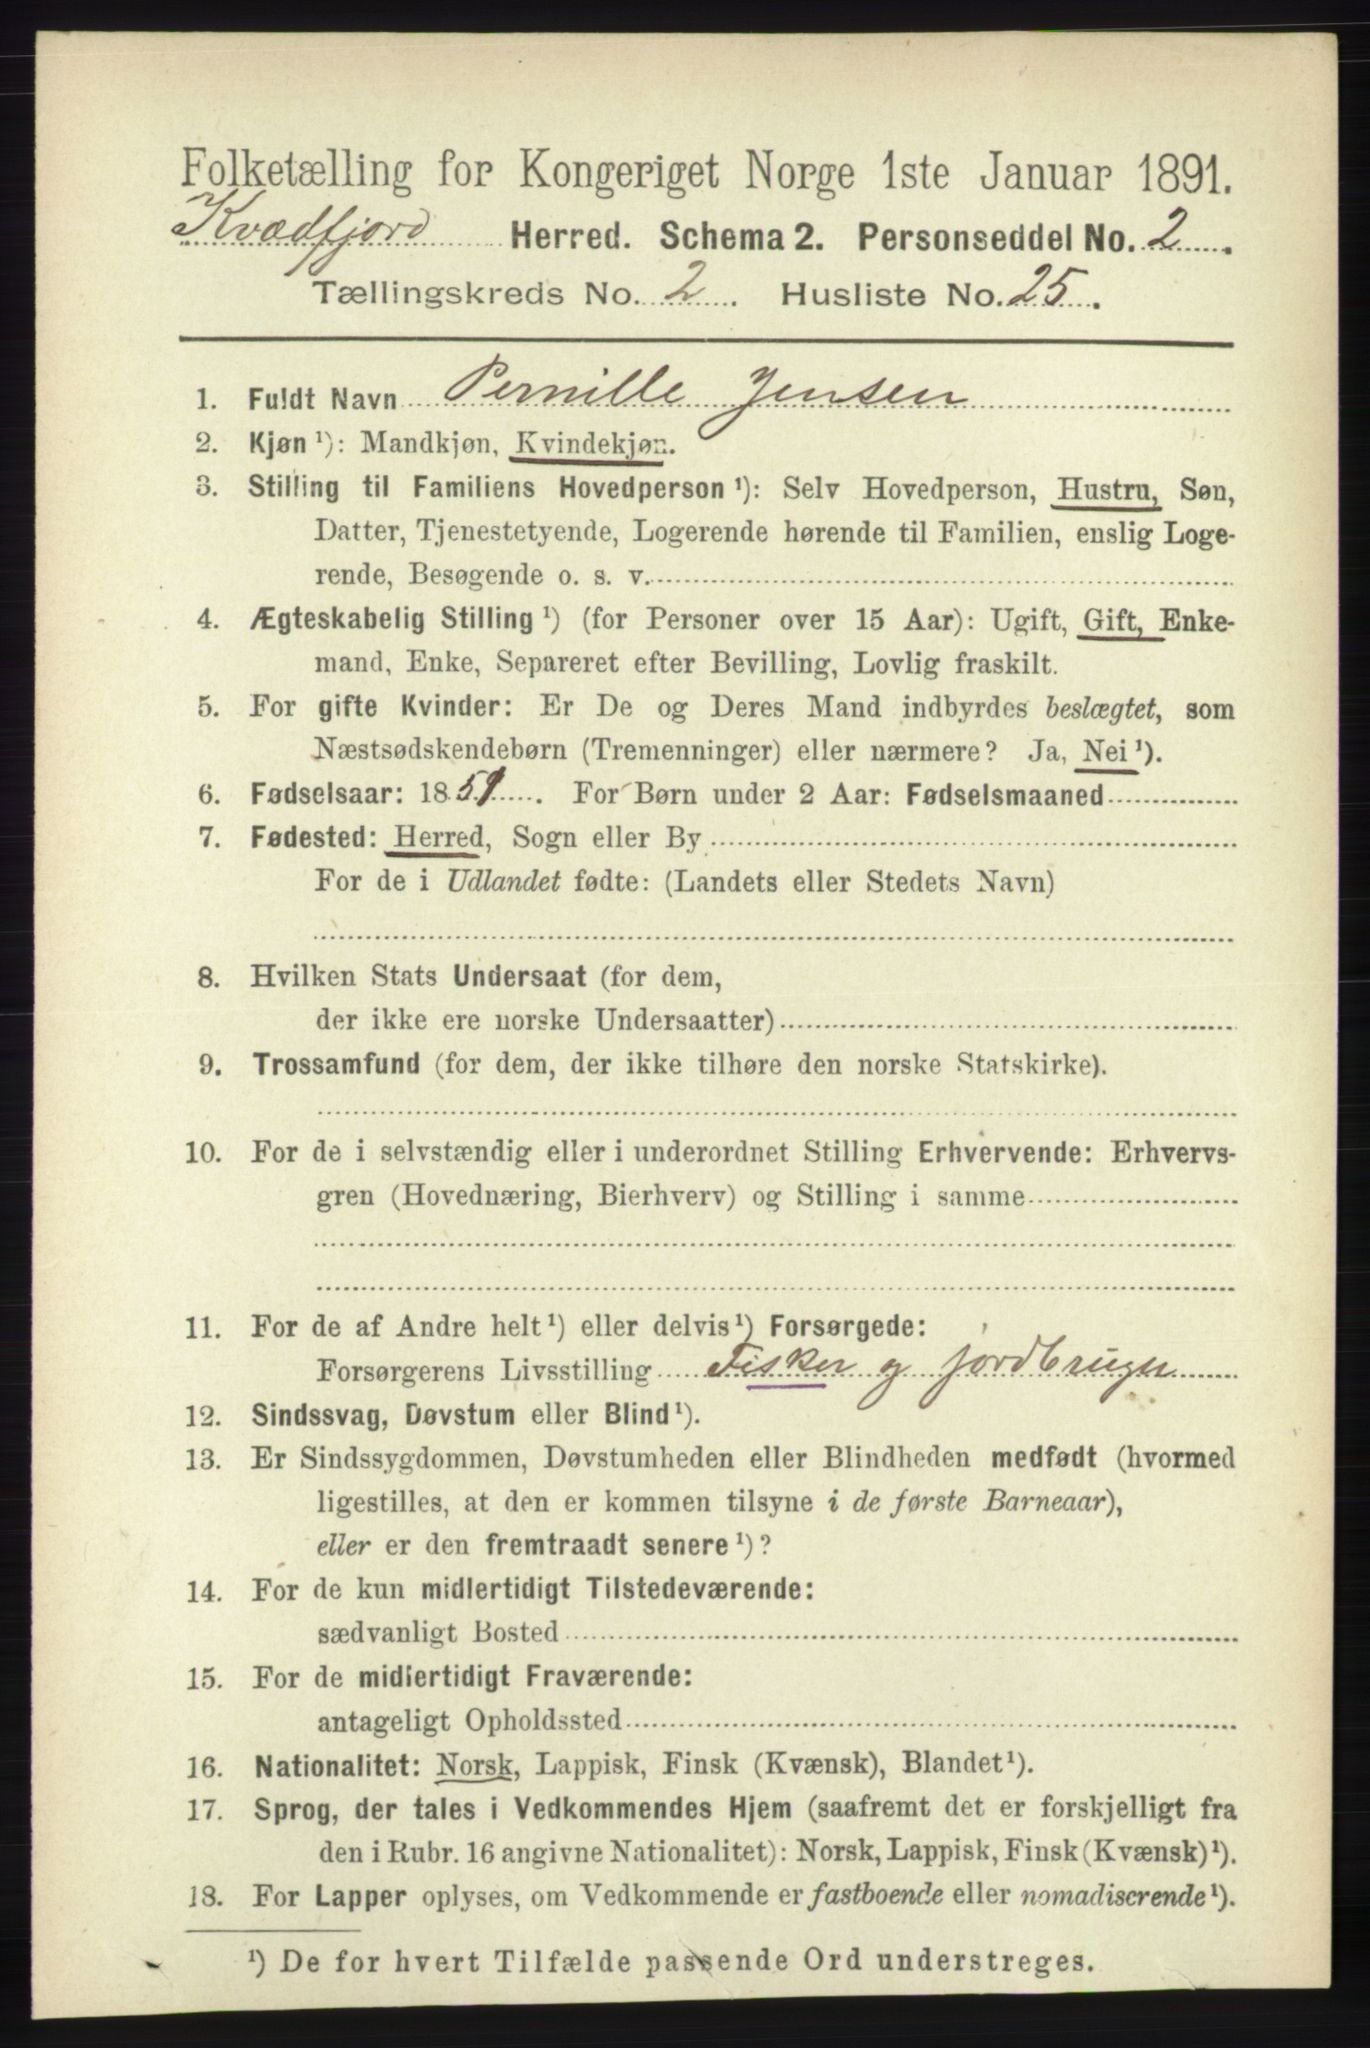 Folketælling for Kongeriget Norge 1ste Januar 1891.
Kvædfjord Herred. Schema 2. Personseddel No. 2.
Tællingskreds No. 2. Husliste No. 25.
1. Fuldt Navn Pernille Jensen
2. Kjøn ¹): Mandkjøn, Kvindekjøn.
3. Stilling til Familiens Hovedperson ¹): Selv Hovedperson, Hustru, Søn,
Datter, Tjenestetyende, Logerende hørende til Familien, enslig Loge-
rende, Besøgende o. s. v.
4. Ægteskabelig Stilling ¹) (for Personer over 15 Aar): Ugift, Gift, Enke-
mand, Enke, Separeret efter Bevilling, Lovlig fraskilt.
5. For gifte Kvinder: Er De og Deres Mand indbyrdes beslægtet, som
Næstsødskendebørn (Tremenninger) eller nærmere? Ja, Nei ¹).
6. Fødselsaar: 1859. For Børn under 2 Aar: Fødselsmaaned
7. Fødested: Herred, Sogn eller By
For de i Udlandet fødte: (Landets eller Stedets Navn)
8. Hvilken Stats Undersaat (for dem,
der ikke ere norske Undersaatter)
9. Trossamfund (for dem, der ikke tilhøre den norske Statskirke).
10. For de i selvstændig eller i underordnet Stilling Erhvervende: Erhvervs-
gren (Hovednæring, Bierhverv) og Stilling i samme
11. For de af Andre helt ¹) eller delvis ¹) Forsørgede:
Forsørgerens Livsstilling Fisker og jordbruger
12. Sindssvag, Døvstum eller Blind ¹).
13. Er Sindssygdommen, Døvstumheden eller Blindheden medfødt (hvormed
ligestilles, at den er kommen tilsyne i de første Barneaar),
eller er den fremtraadt senere ¹)?
14. For de kun midlertidigt Tilstedeværende:
sædvanligt Bosted
15. For de midlertidigt Fraværende:
antageligt Opholdssted
16. Nationalitet: Norsk, Lappisk, Finsk (Kvænsk), Blandet ¹).
17. Sprog, der tales i Vedkommendes Hjem (saafremt det er forskjelligt fra
den i Rubr. 16 angivne Nationalitet): Norsk, Lappisk, Finsk (Kvænsk) ¹).
18. For Lapper oplyses, om Vedkommende er fastboende eller nomadiserende ¹).
¹) De for hvert Tilfælde passende Ord understreges.